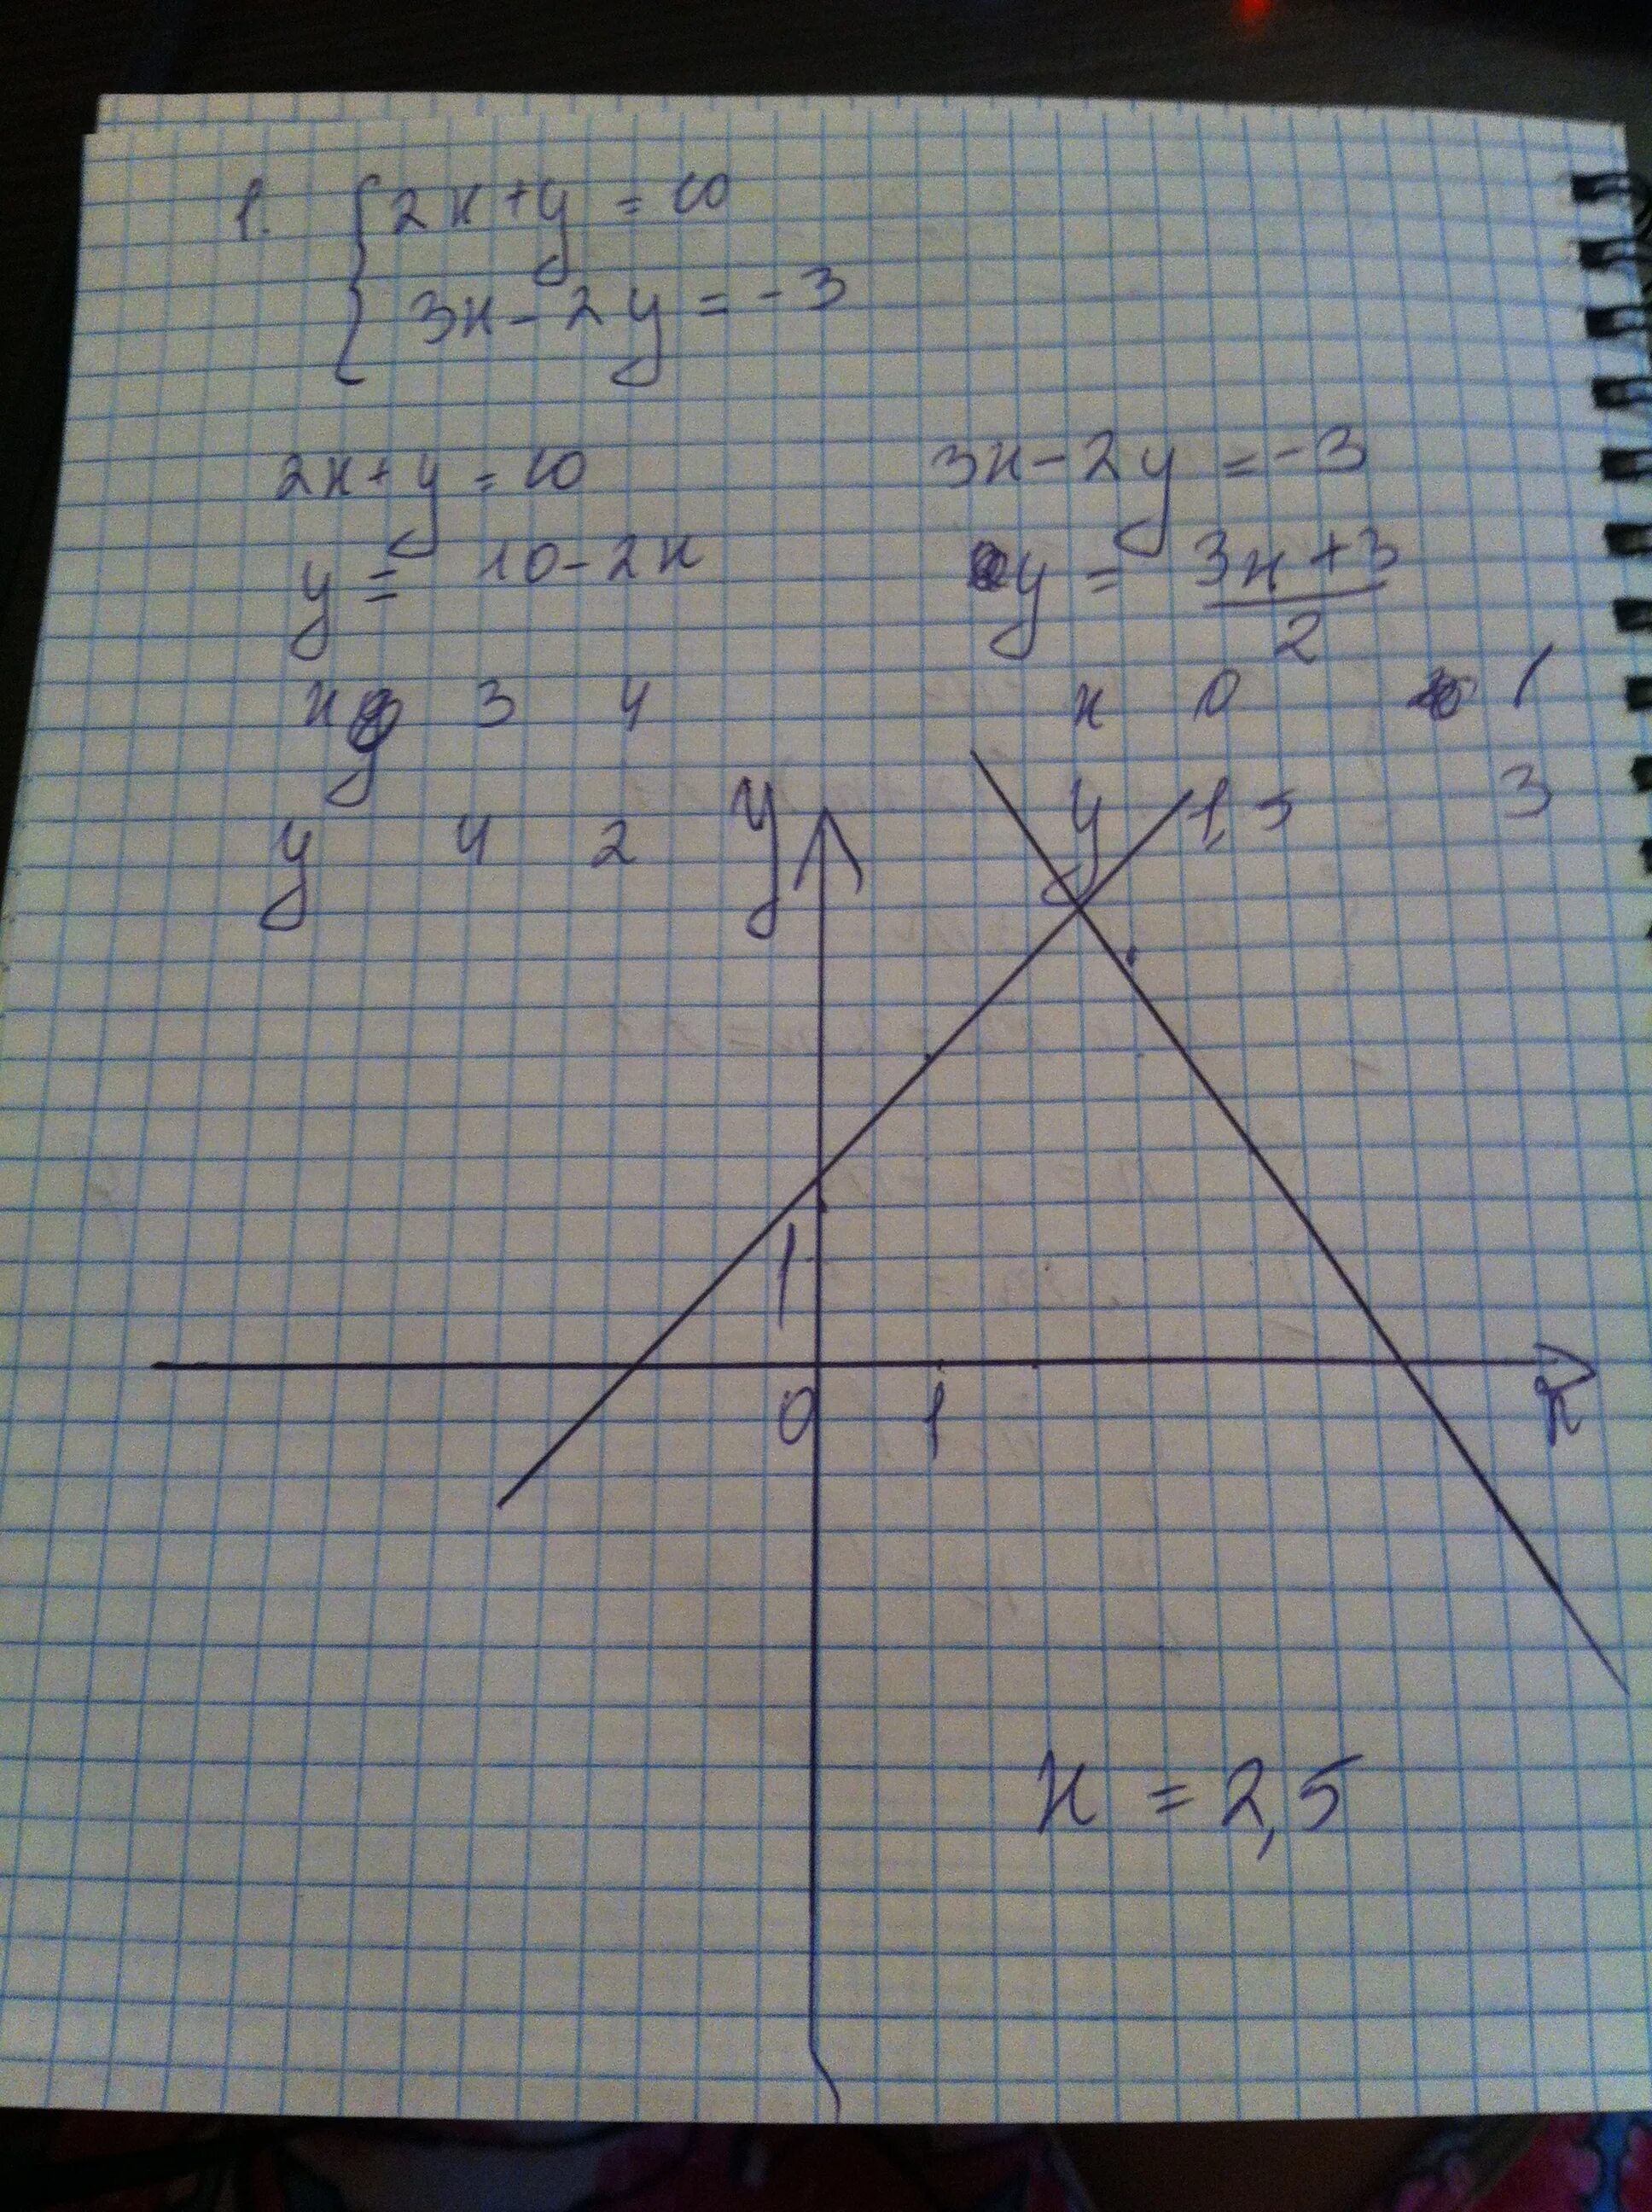 1. { 2x+y = 10
3x-2y = -3
2x+y = 10
y = 10-2x
x 3 4
y 4 2
3x-2y = -3
y = 3x+3
2
x 0 1
y 1,5 3
y
1
0 1 x
x = 2,5